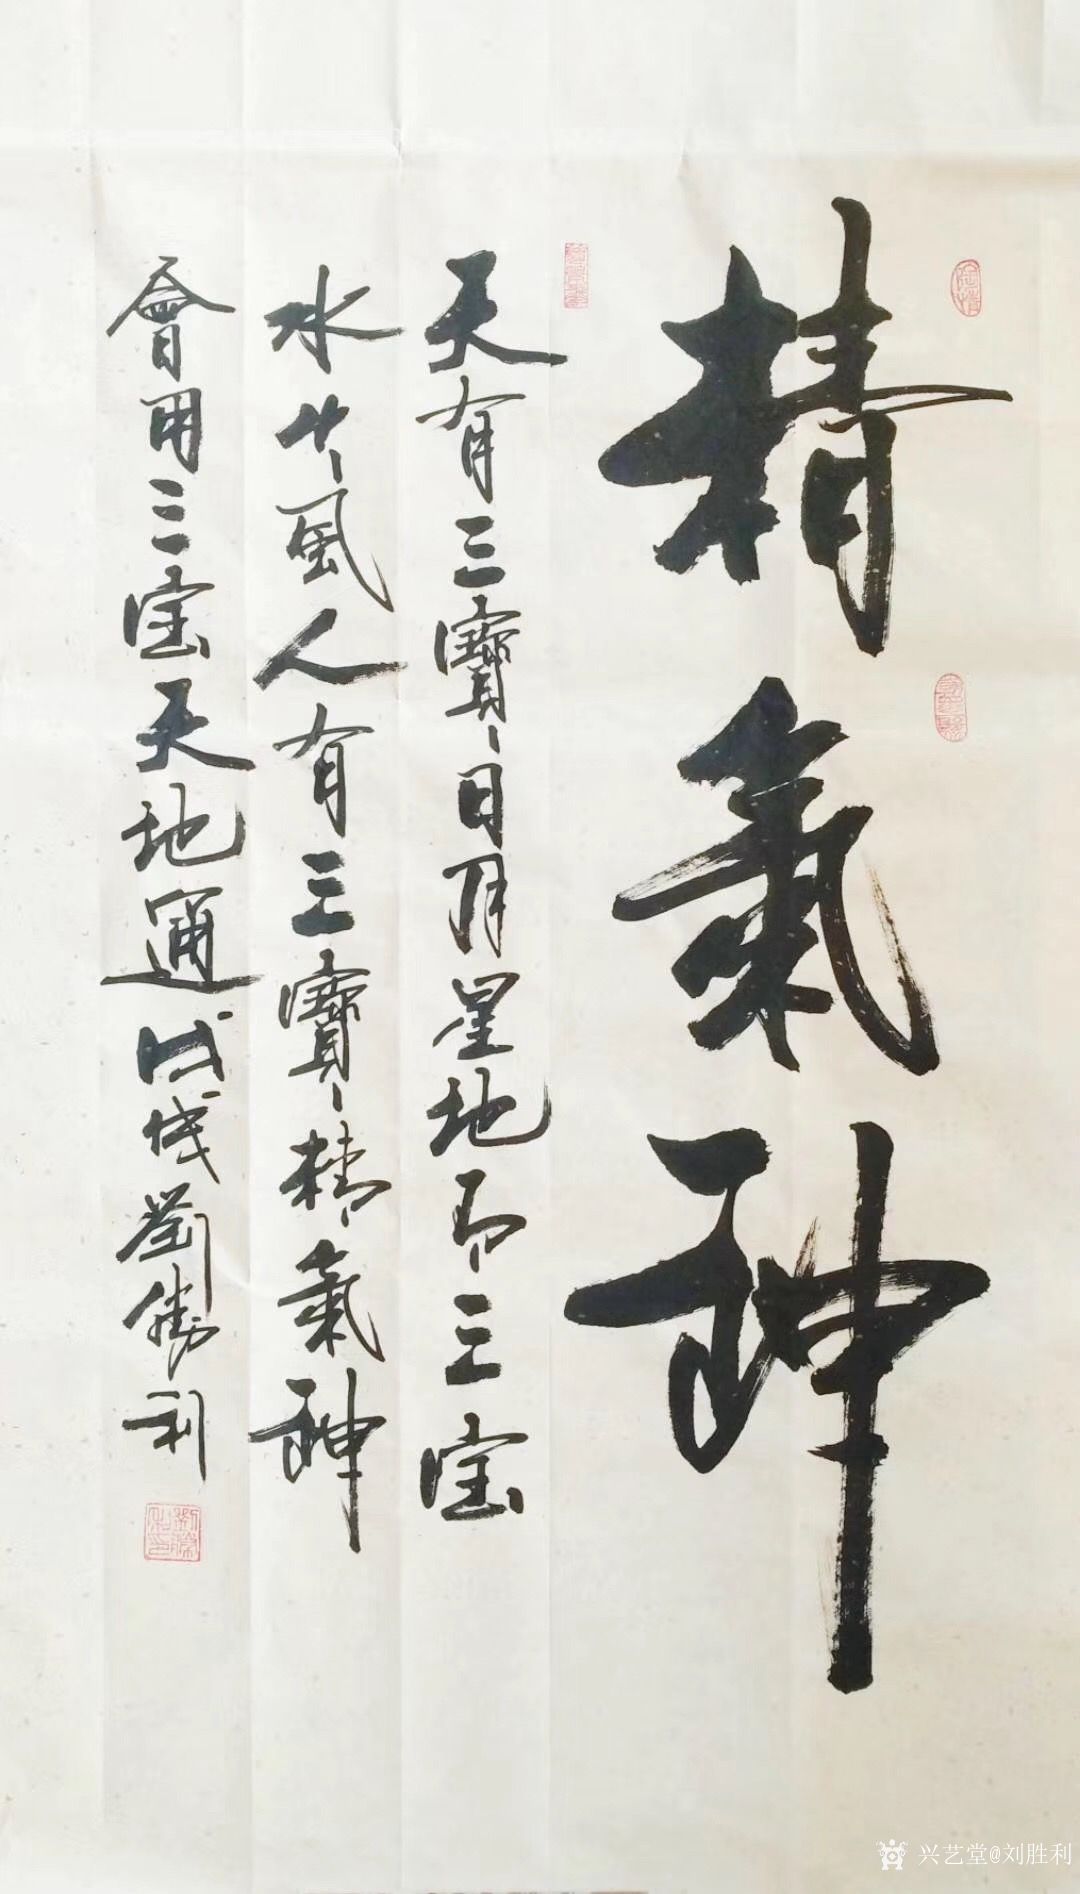 精氣神
天有三寶日月星地有三宝
水火風人有三寶精氣神
會用三宝天地通戊戌劉勝利
兴艺堂@刘胜利